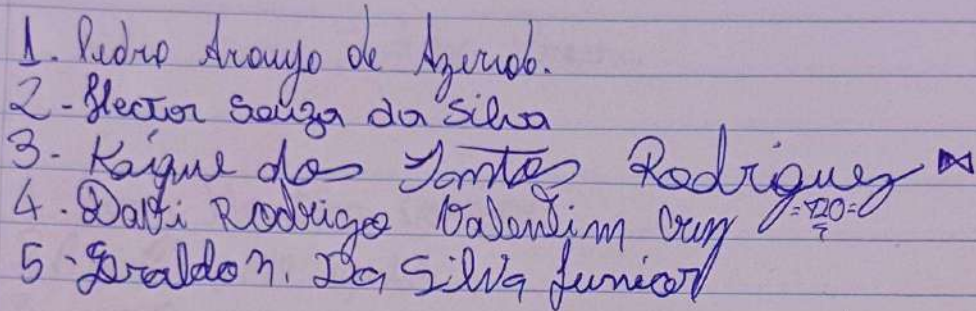 1. Pedro Araujo de Azevedo.
2 - Hector Souza da Silva
3 - Kaique dos Santos Rodriguez
4. Davi Rodrigo Valentim Cruz =120=
5 - Geraldo n. Da Silva Junior